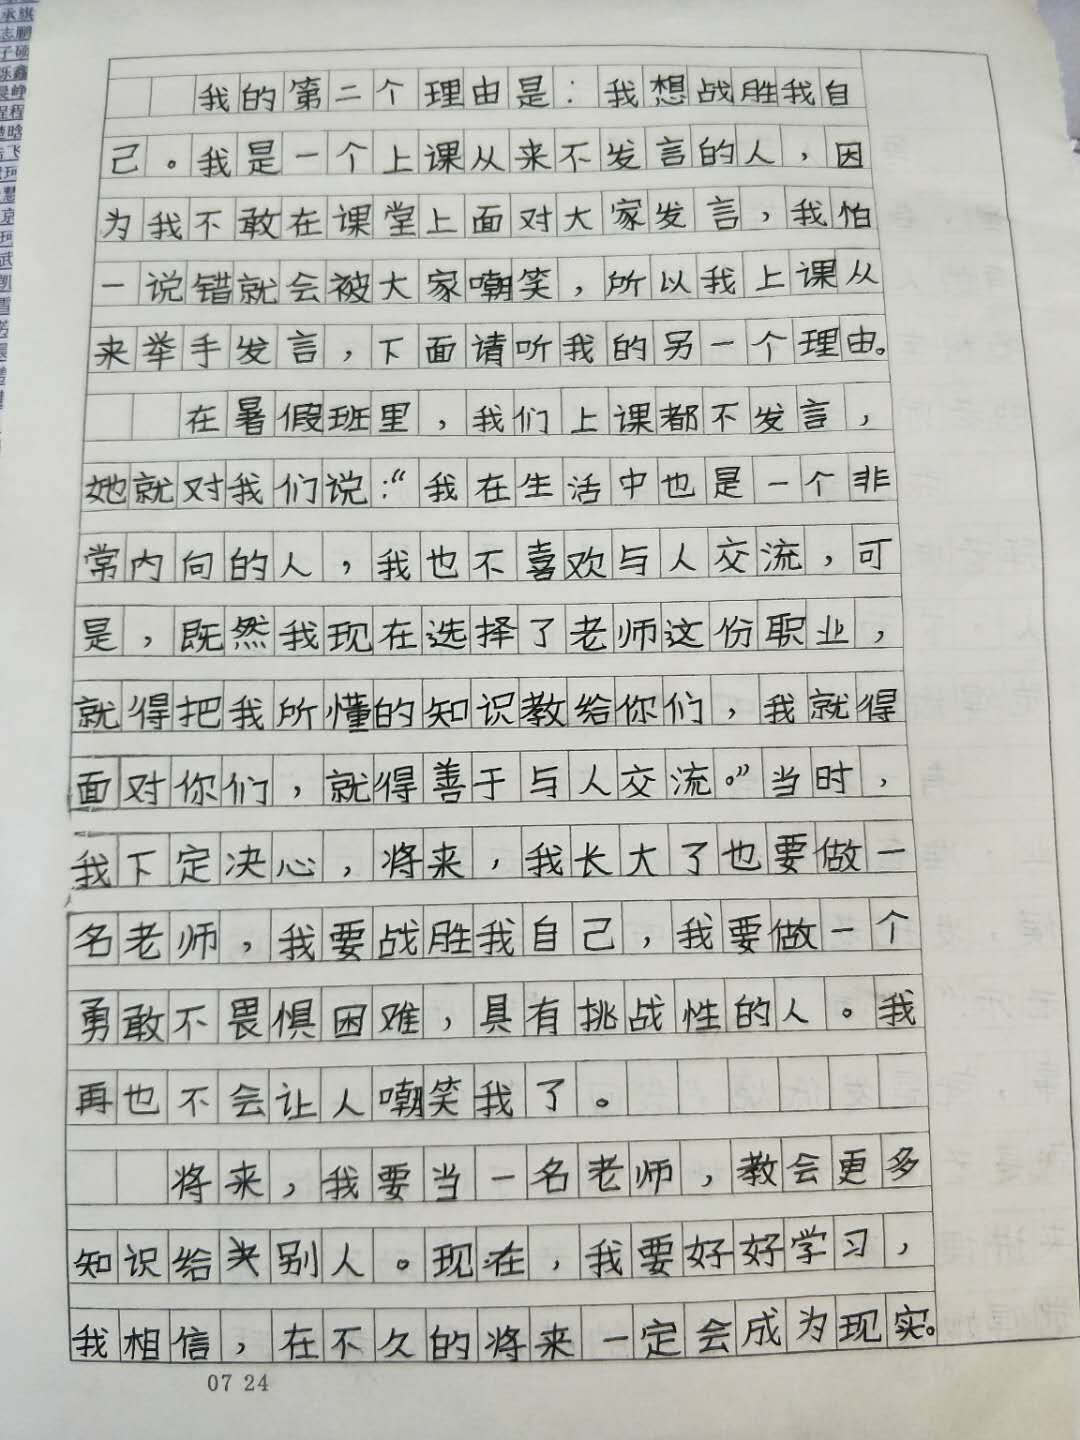 承旗
志鹏
子硕
烁鑫
晨峥
程程
我的第二个理由是：我想战胜我自
己。我是一个上课从来不发言的人，因
为我不敢在课堂上面对大家发言，我怕
一说错就会被大家嘲笑，所以我上课从
来举手发言，下面请听我的另一个理由。
在暑假班里，我们上课都不发言，
她就对我们说：“我在生活中也是一个非
常内向的人，我也不喜欢与人交流，可
是，既然我现在选择了老师这份职业，
就得把我所懂的知识教给你们，我就得
面对你们，就得善于与人交流。”当时，
我下定决心，将来，我长大了也要做一
名老师，我要战胜我自己，我要做一个
勇敢不畏惧困难，具有挑战性的人。我
再也不会让人嘲笑我了。
将来，我要当一名老师，教会更多
知识给别人。现在，我要好好学习，
我相信，在不久的将来一定会成为现实。
07 24